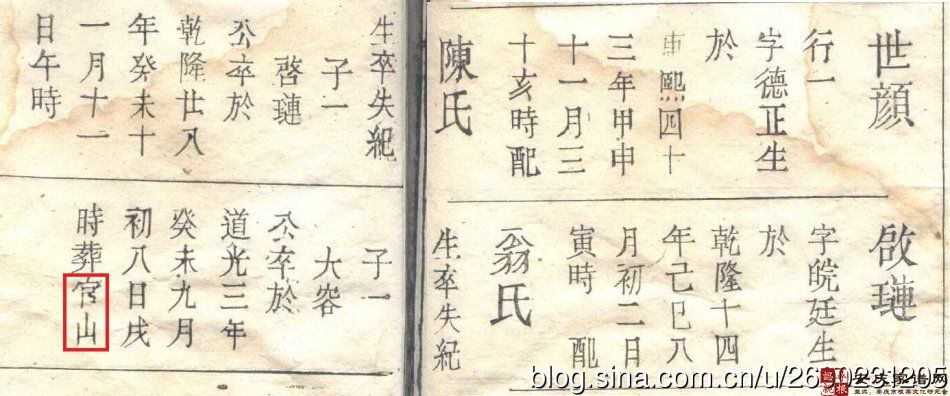 世顏
行一
字德正生
於
康熙四十
三年甲申
十一月三
十亥時配
陳氏
生卒失紀
子一
啓璉
公卒於
乾隆廿八
年癸未十
一月十一
日午時
啟璉
字皖廷生
於
乾隆十四
年己巳八
月初二日
寅時 配
翁氏
生卒失紀
子一
大容
公卒於
道光三年
癸未九月
初八日戌
時葬官山
blog.sina.com.cn/u/
安庆家谱网